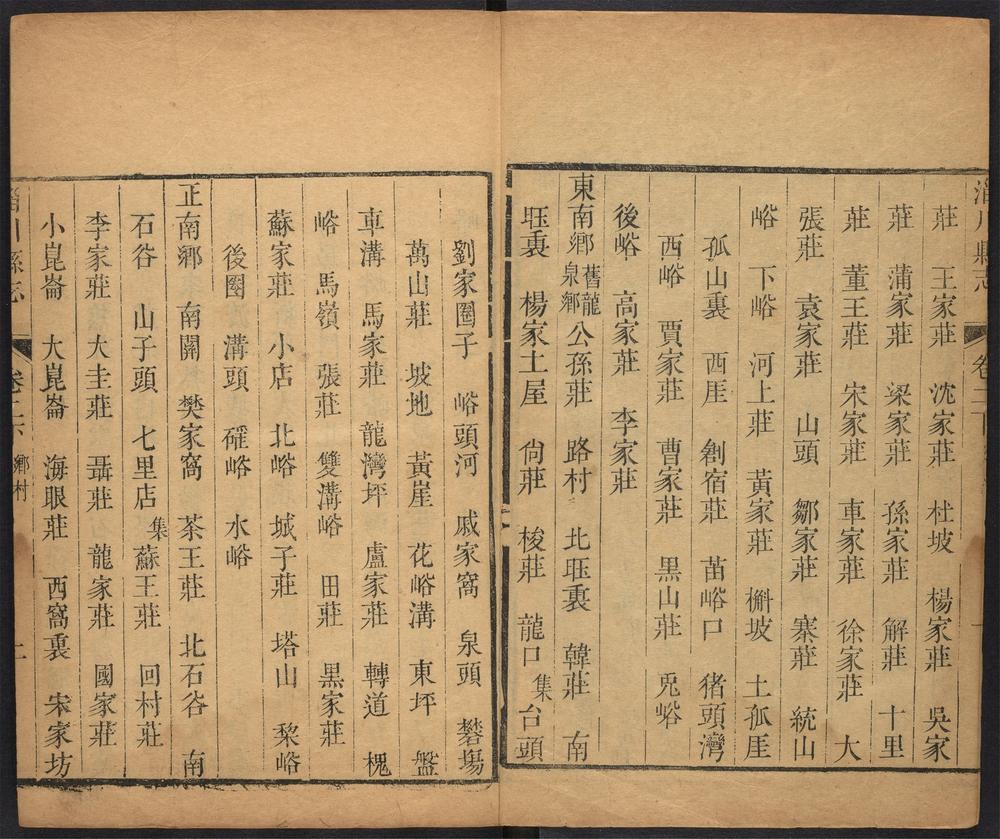 淄川縣志 卷二下
莊 王家莊 沈家莊 杜坡 楊家莊 吳家
莊 蒲家莊 梁家莊 孫家莊 解莊 十里
莊 董王莊 宋家莊 車家莊 徐家莊 大
張莊 袁家莊 山頭 鄒家莊 寨莊 統山
峪 下峪 河上莊 黃家莊 槲坡 土孤厓
孤山裏 西厓 創宿莊 苗峪口 猪頭灣
西峪 賈家莊 曹家莊 黒山莊 兎峪
後峪 高家莊 李家莊
東南鄉舊龍泉鄉公孫莊 路村 北珏裏 韓莊 南
珏裏 楊家土屋 尙莊 梭莊 龍口集台頭
劉家圈子 峪頭河 戚家窩 泉頭 礬場
萬山莊 坡地 黃崖 花峪溝 東坪 盤
車溝 馬家莊 龍灣坪 盧家莊 轉道 槐
峪 馬嶺 張莊 雙溝峪 田莊 黒家莊
蘇家莊 小店 北峪 城子莊 塔山 棃峪
後圈 溝頭 磪峪 水峪
正南鄉 南關 樊家窩 茶王莊 北石谷 南
石谷 山子頭 七里店集蘇王莊 回村莊
李家莊 大圭莊 聶莊 龍家莊 國家莊
小崑崙 大崑崙 海眼莊 西窩裏 宋家坊
淄川縣志 卷二下 鄉村